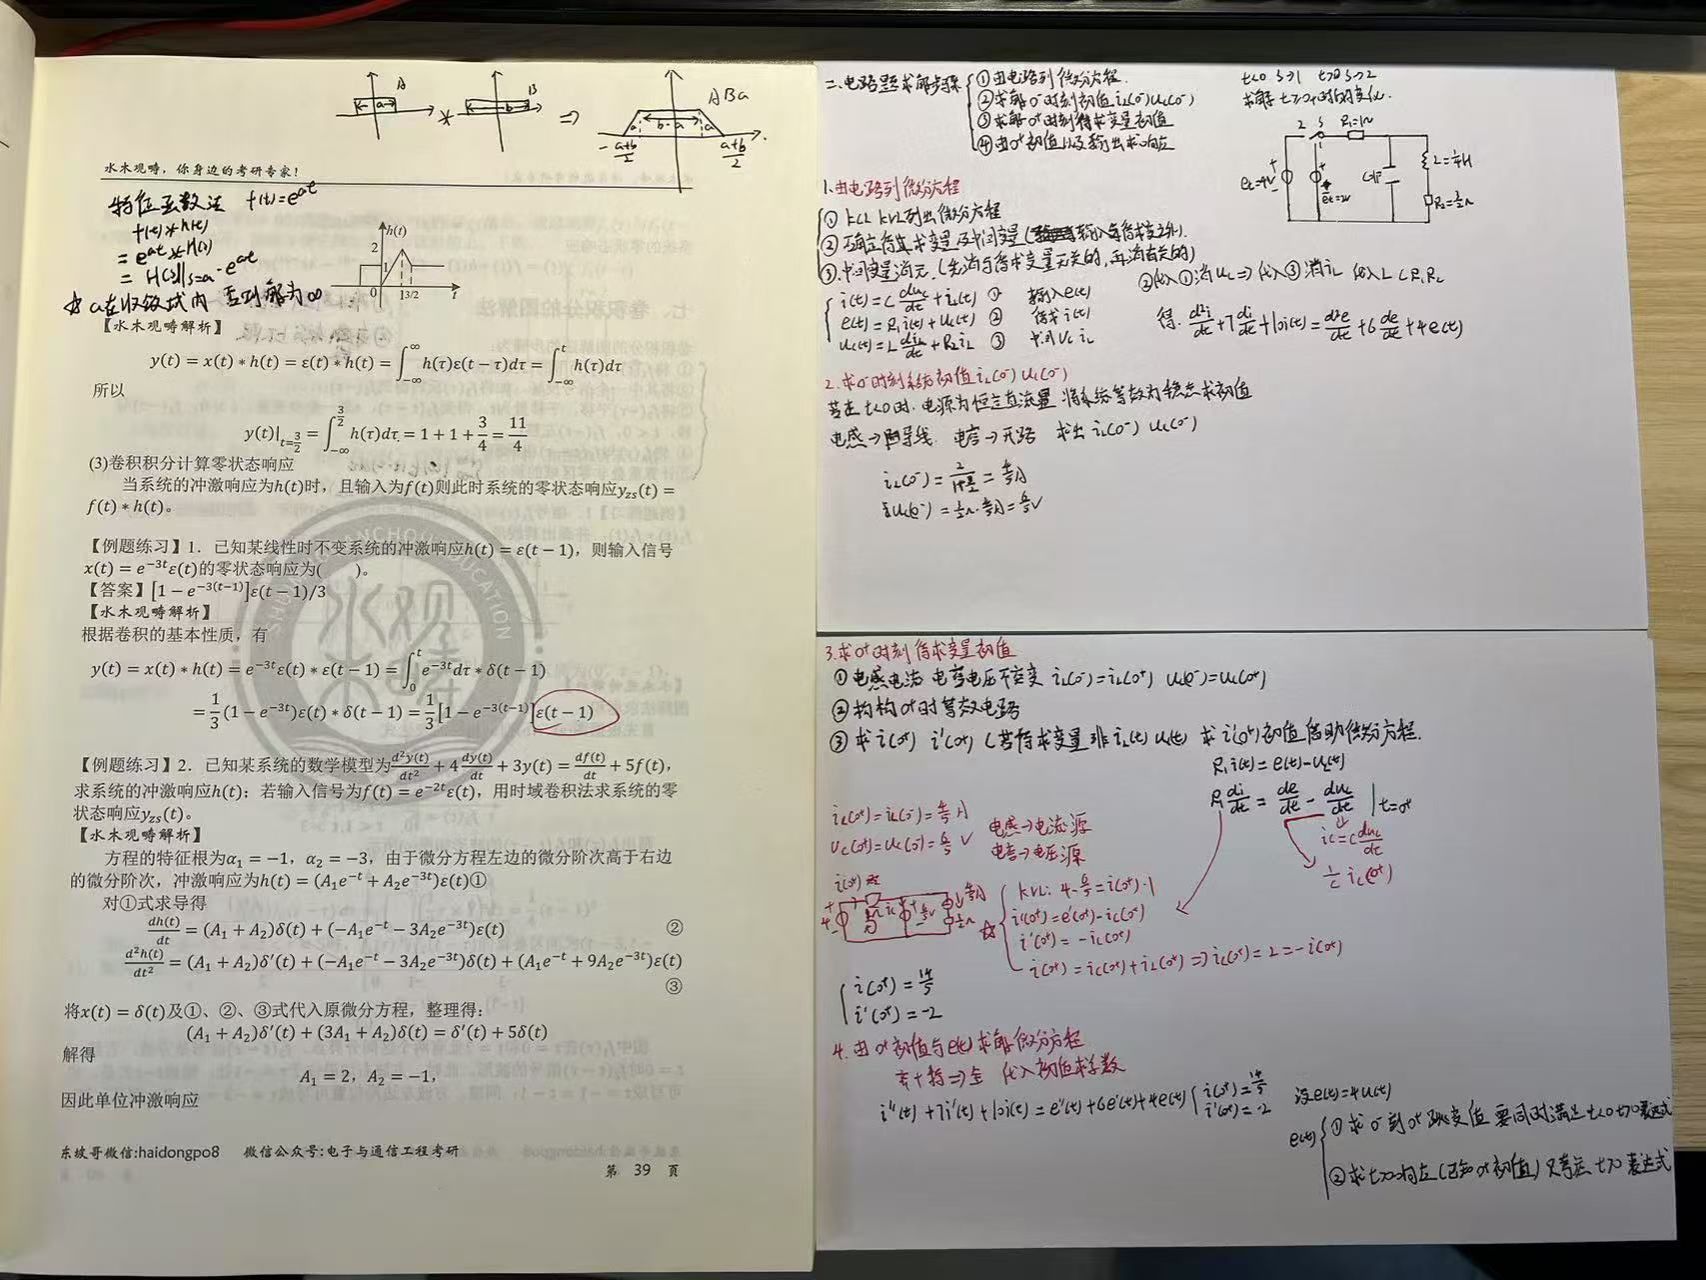 A
B
ABa
a
b
b-a
a
*
⇒
-(a+b)/2
(a+b)/2
水木观畴，你身边的考研专家！
特征函数法 f(t)=e^{at}
f(t)*h(t)
=e^{at}*h(t)
=H(s)|_{s=a}·e^{at}
☆ a在收敛域内 否则解为∞
h(t)
2
1
0
1
3/2
t
【水木观畴解析】
y(t)=x(t)*h(t)=ε(t)*h(t)=∫_{-∞}^{∞}h(τ)ε(t-τ)dτ=∫_{-∞}^{t}h(τ)dτ
所以
y(t)|_{t=3/2}=∫_{-∞}^{3/2}h(τ)dτ=1+1+3/4=11/4
(3)卷积积分计算零状态响应
当系统的冲激响应为h(t)时，且输入为f(t)则此时系统的零状态响应y_{zs}(t)=
f(t)*h(t)。
【例题练习】1．已知某线性时不变系统的冲激响应h(t)=ε(t-1)，则输入信号
x(t)=e^{-3t}ε(t)的零状态响应为( )。
【答案】[1-e^{-3(t-1)}]ε(t-1)/3
【水木观畴解析】
根据卷积的基本性质，有
y(t)=x(t)*h(t)=e^{-3t}ε(t)*ε(t-1)=∫_{0}^{t}e^{-3t}dτ*δ(t-1)
=1/3(1-e^{-3t})ε(t)*δ(t-1)=1/3[1-e^{-3(t-1)}]ε(t-1)
【例题练习】2．已知某系统的数学模型为d²y(t)/dt²+4dy(t)/dt+3y(t)=df(t)/dt+5f(t)，
求系统的冲激响应h(t)；若输入信号为f(t)=e^{-2t}ε(t)，用时域卷积法求系统的零
状态响应y_{zs}(t)。
【水木观畴解析】
方程的特征根为α₁=-1，α₂=-3，由于微分方程左边的微分阶次高于右边
的微分阶次，冲激响应为h(t)=(A₁e^{-t}+A₂e^{-3t})ε(t)①
对①式求导得
dh(t)/dt=(A₁+A₂)δ(t)+(-A₁e^{-t}-3A₂e^{-3t})ε(t) ②
d²h(t)/dt²=(A₁+A₂)δ'(t)+(-A₁e^{-t}-3A₂e^{-3t})δ(t)+(A₁e^{-t}+9A₂e^{-3t})ε(t)
③
将x(t)=δ(t)及①、②、③式代入原微分方程，整理得:
(A₁+A₂)δ'(t)+(3A₁+A₂)δ(t)=δ'(t)+5δ(t)
解得
A₁=2，A₂=-1,
因此单位冲激响应
东坡哥微信:haidongpo8 微信公众号:电子与通信工程考研
第 39 页
水木观畴
二、电路题求解步骤
①由电路列微分方程.
②求解0⁻时刻初值i_L(0⁻)u_c(0⁻)
③求解0⁺时刻待求变量初值
④由0⁺初值以及输出求响应
t<0 S→1 t>0 S→2
求解t>0时i(t)变化.
2
S
R₁=1Ω
e(t)=4V
e(t)=2V
C=1F
L=¼H
R₂=3/2Ω
1.由电路列微分方程
①KCL KVL列出微分方程
②确定待求变量及中间变量
③中间变量消元.(先消与待求变量无关的,再消有关的)
i(t)=C du_c/dt+i_L(t) ①
e(t)=R₁i(t)+u_c(t) ②
u_c(t)=L di_L/dt+R₂i_L ③
输入e(t)
待求i(t)
中间u_c i_L
②代入①消u_c⇒代入③消i_L 代入L C R₁R₂
得. d²i/dt²+7di/dt+10i(t)=d²e/dt²+6de/dt+4e(t)
2.求0⁻时刻系统初值i_L(0⁻)u_c(0⁻)
若在t<0时.电源为恒定直流量 将系统等效为稳态求初值
电感→导线 电容→开路 求出i_L(0⁻) u_c(0⁻)
i_L(0⁻)=2/(1+3/2)=4/5A
u_c(0⁻)=3/2Ω·4/5A=6/5V
3.求0⁺时刻待求变量初值
①电感电流 电容电压不突变 i_L(0⁻)=i_L(0⁺) u_c(0⁻)=u_c(0⁺)
②构构0⁺时等效电路
③求i(0⁺) i'(0⁺) (若待求变量非i_L(t)u_c(t) 求i'(0⁺)初值借助微分方程.
R₁i(t)=e(t)-u_c(t)
R₁di/dt=de/dt-du_c/dt|t=0⁺
i_c=C du_c/dt
1/C i_c(0⁺)
i_L(0⁺)=i_L(0⁻)=4/5A
u_c(0⁺)=u_c(0⁻)=6/5V
电感→电流源
电容→电压源
i(0⁺)
☆
KVL: 4-6/5=i(0⁺)·1
i'(0⁺)=e'(0⁺)-i_c(0⁺)
i'(0⁺)=-i_c(0⁺)
i(0⁺)=i_c(0⁺)+i_L(0⁺)⇒i_c(0⁺)=2=-i(0⁺)
i(0⁺)=14/5
i'(0⁺)=-2
4.由0⁺初值与e(t)求解微分方程
齐+特⇒全 代入初值求系数
i''(t)+7i'(t)+10i(t)=e''(t)+6e'(t)+4e(t)
i(0⁺)=14/5
i'(0⁺)=-2
没e(t)=4u(t)
e(t)
①求0⁻到0⁺跳变值 要同时满足t<0 t>0表达式
②求t>0响应(已知0⁺初值)只考虑t>0表达式